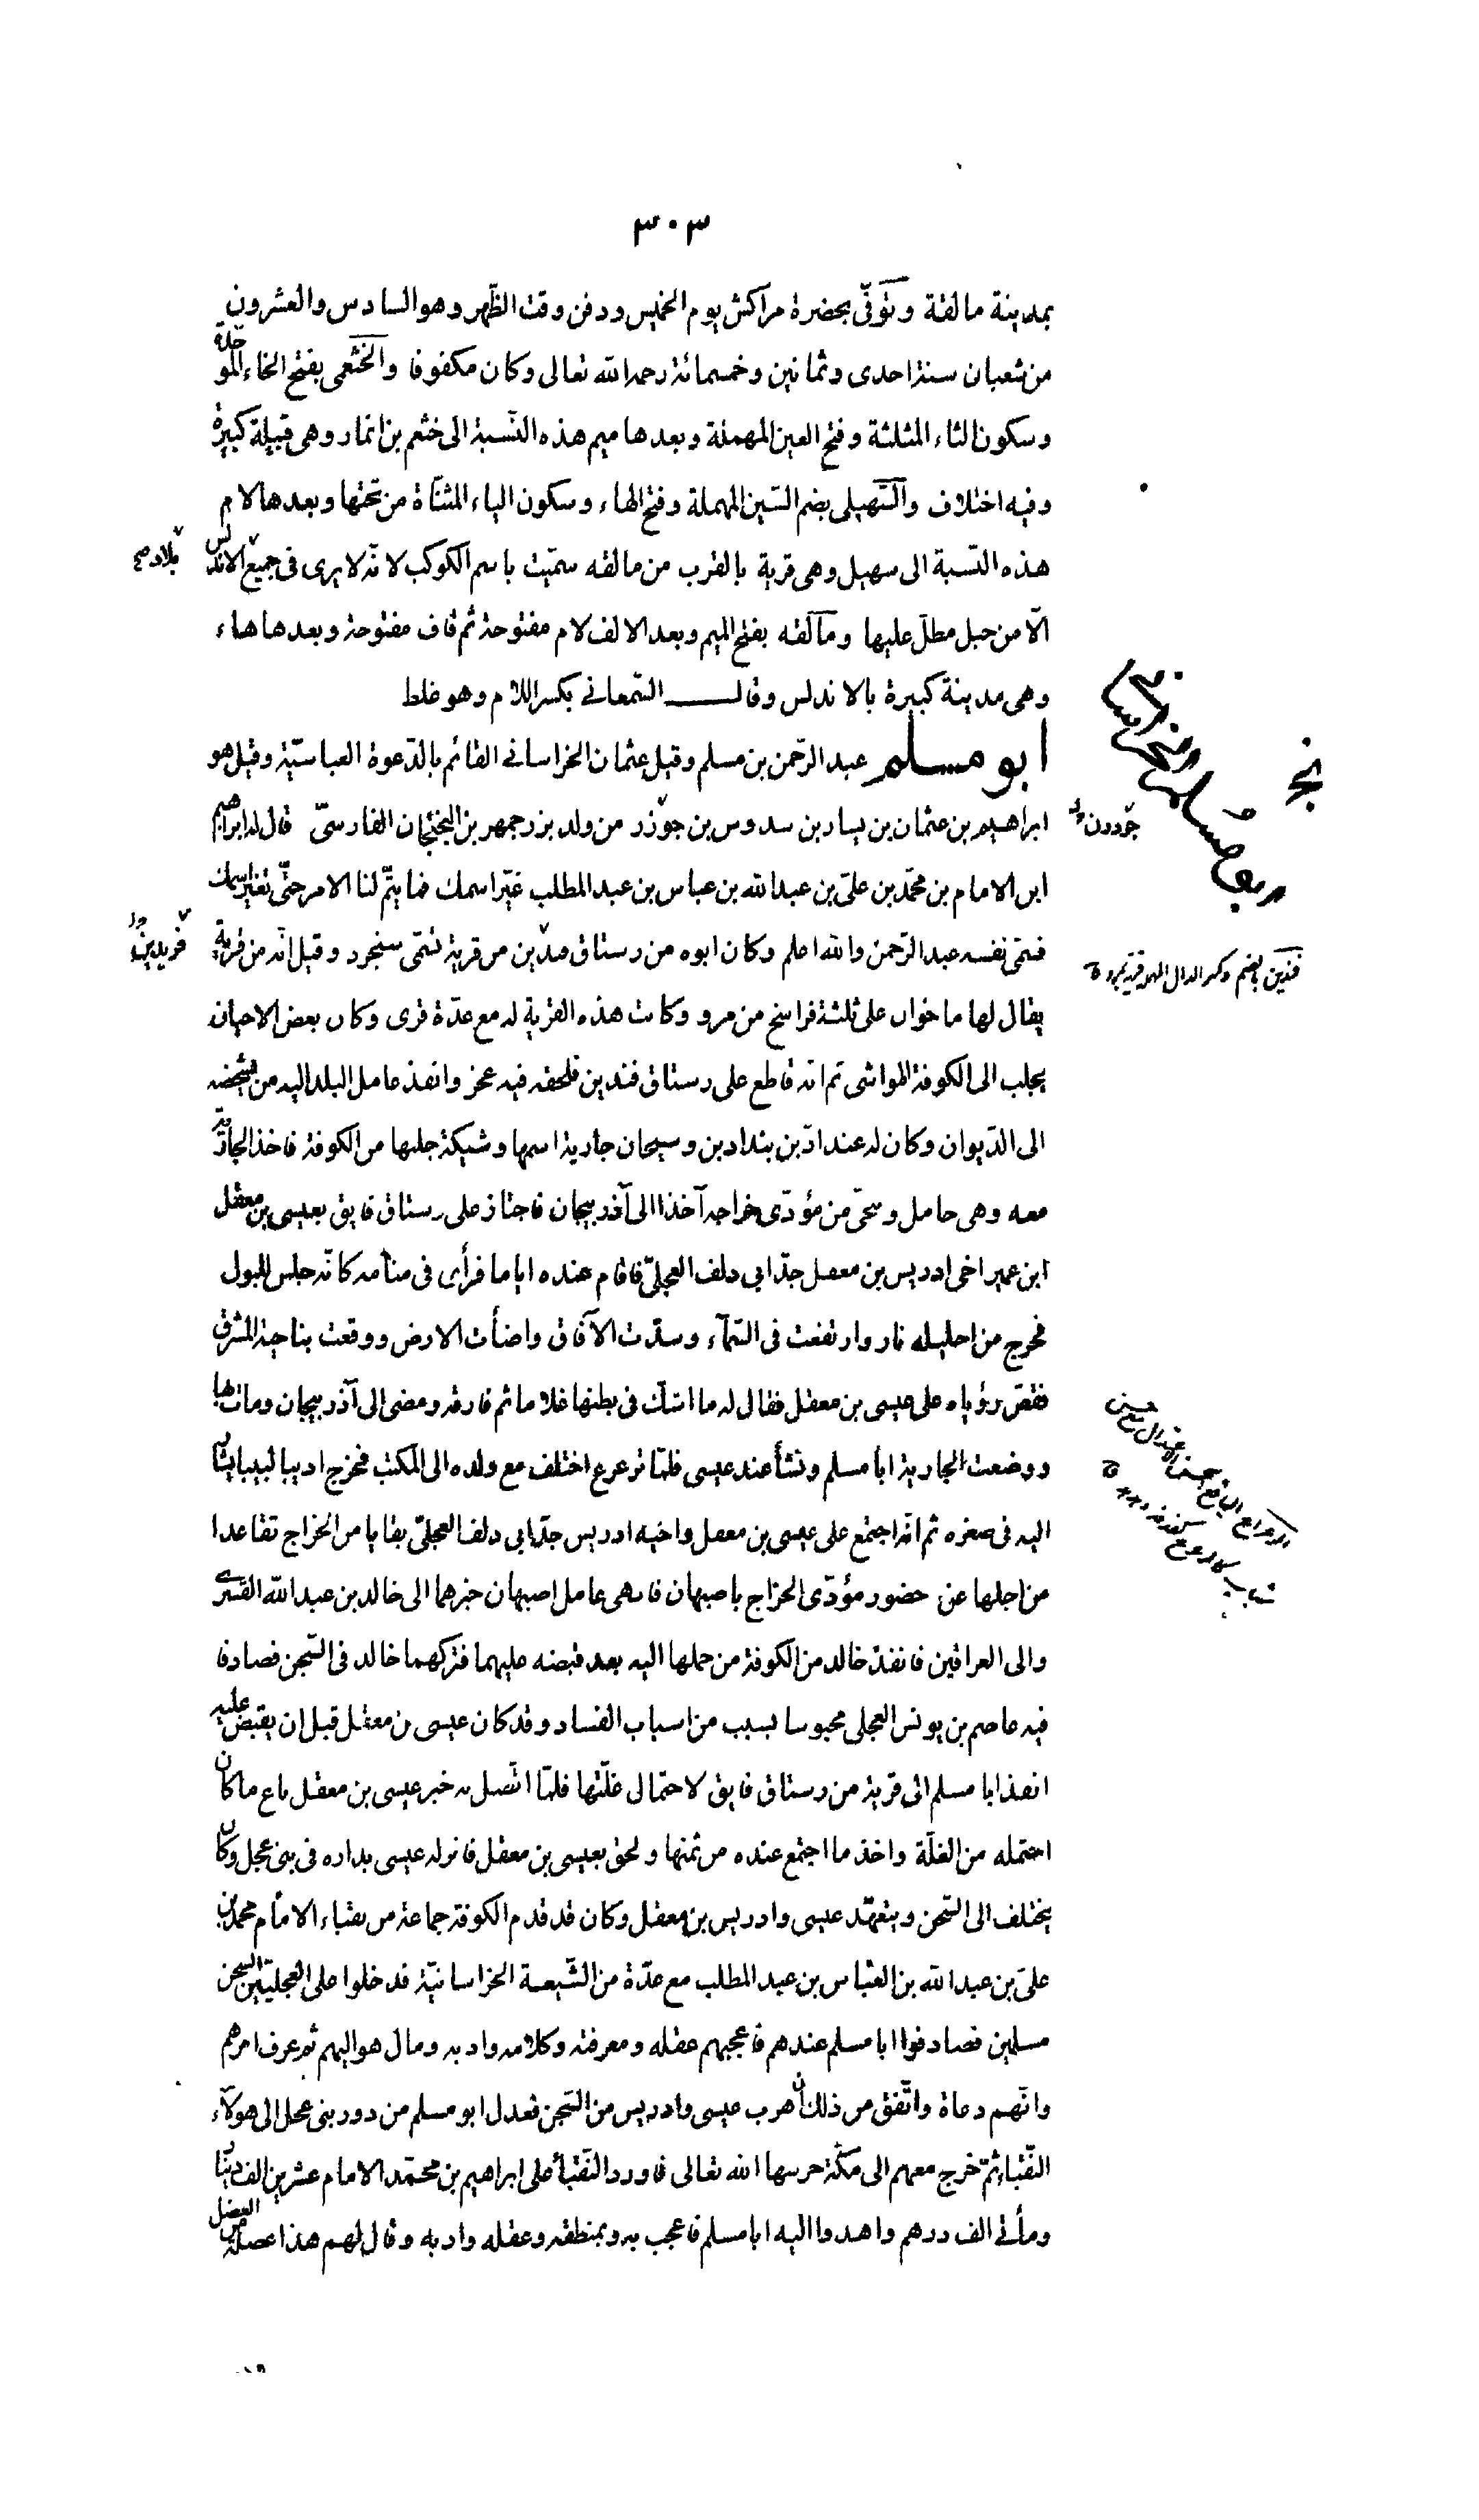 ٣٠٣
بمدينة مالقة وتوفّى بحضرة مراكش يوم الخميس ودفن وقت الظّهر وهو السادس والعشرون
من شعبان سنة احدى وثمانين وخمسمائة رحمه الله تعالى وكان مكفوفا والخثعمى بفتح الخاء الموحّدة
وسكون الثاء المثلثة وفتح العين المهملة وبعدها ميم هذه النّسبة الى خثعم بن انمار وهى قبيلة كبيرة
وفيه اختلاف والسّهيلى بضم السّين المهملة وفتح الهاء وسكون الياء المثنّاة من تحتها وبعدها لام
هذه النّسبة الى سهيل وهى قرية بالقرب من مالقه سمّيت باسم الكوكب لانّه لا يرى فى جميع الاندلس
بلاد صح
الّا من جبل مطلّ عليها ومالقه بفتح الميم وبعد الالف لام مفتوحة ثم قاف مفتوحة وبعدها هاء
وهى مدينة كبيرة بالاندلس وقال السّمعانى بكسر اللام وهو غلط
ابو مسلم الخراسانى
ابو مسلم عبد الرّحمن بن مسلم وقيل عثمان الخراسانى القائم بالدّعوة العباسيّة وقيل هو
ابراهيم بن عثمان بن يسار بن سدوس بن جوذر من ولد بزرجمهر بن البختجان الفارسىّ قال له ابراهيم
جوددن
ابن الامام بن محمّد بن علىّ بن عبد الله بن عباس بن عبد المطلب غيّر اسمك فما يتمّ لنا الامر حتّى تغيّر اسمك
فسمّى نفسه عبد الرّحمن والله اعلم وكان ابوه من رستاق فندين من قرية تسمّى سنجرد وقيل انّه من قرية
فريدين
فندين بالضم وكسر الدال المهملة قرية بمرو
يقال لها ماخوان على ثلثة فراسخ من مرو وكانت هذه القرية له مع عدّة قرى وكان بعض الاحيان
يجلب الى الكوفة المواشى ثم انّه قاطع على رستاق فندين فلحقه فيه عجز وانفذ عامل البلد اليه من يشخصه
الى الدّيوان وكان له عند اذين بنداد بن وسيحان جارية اسمها وشيكة جلبها من الكوفة فاخذ الجارية
معه وهى حامل وتنحّى من مؤدّى خراجه آخذا الى آذربيجان فاجتاز على رستاق فايق بعيسى بن معقل
ابن عمير اخى ادريس بن معقل جدّ ابى دلف العجلىّ فاقام عنده اياما فرأى فى منامه كانّه جلس للبول
فخرج من احليله نار وارتفعت فى السّماء وسدّت الآفاق واضأت الارض ووقعت بناحية المشرق
فقصّ رؤياه على عيسى بن معقل فقال له ما اشك فى بطنها غلاما ثم فارقه ومضى الى آذربيجان ومات بها
ووضعت الجارية ابا مسلم ونشأ عند عيسى فلمّا ترعرع اختلف مع ولده الى المكتب فخرج اديبا لبيبا يشار
اليه فى صغره ثم انّه اجتمع على عيسى بن معقل واخيه ادريس جدّ ابى دلف العجلىّ بقايا من الخراج تقاعدا
من اجلها عن حضور مؤدّى الخراج باصبهان فانهى عامل اصبهان خبرهما الى خالد بن عبد الله القسرى
والى العراقين فانفذ خالد من الكوفة من حملها اليه بعد قبضه عليهما فتركهما خالد فى السّجن فصادفا
فيه عاصم بن يونس العجلى محبوسا بسبب من اسباب الفساد وقد كان عيسى بن معقل قبل ان يقبض عليه
انفذ ابا مسلم الى قرية من رستاق فايق لاحتمال غلّتها فلمّا اتّصل به خبر عيسى بن معقل باع ما كان
احتمله من الغلّة واخذ ما اجتمع عنده من ثمنها ولحق بعيسى بن معقل فانزله عيسى بداره فى بنى عجل وكان
يختلف الى السّجن ويتعهّد عيسى وادريس بن معقل وكان قد قدم الكوفة جماعة من نقباء الامام محمد بن
علىّ بن عبد الله بن العبّاس بن عبد المطلب مع عدّة من الشّيعة الخراسانيّة فدخلوا على العجليّين السجن
مسلمين فصادفوا ابا مسلم عندهم فاعجبهم عقله ومعرفته وكلامه وادبه ومال هو اليهم ثم عرف امرهم
وانّهم دعاة واتّفق من ذلك ان هرب عيسى وادريس من السّجن فعدل ابو مسلم من دور بنى عجل الى هولآء
النّقباء ثمّ خرج معهم الى مكّة حرسها الله تعالى فاورد النّقبأ على ابراهيم بن محمّد الامام عشرين الف دينار
ومأتى الف درهم واهدوا اليه ابا مسلم فاعجب به وبمنطقه وعقله وادبه وقال لهم هذا عضلة من العضل